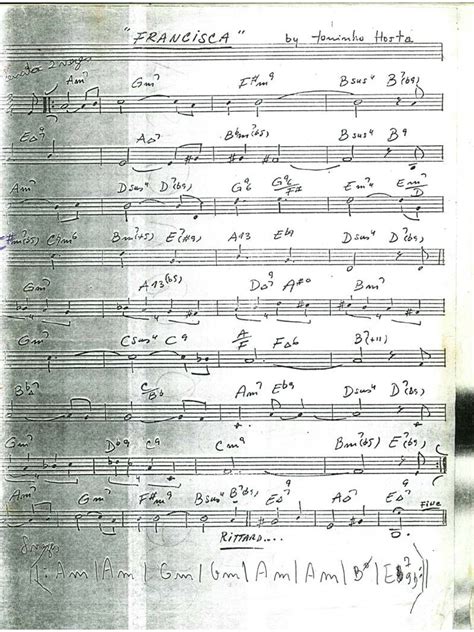 "FRANCISCA" by toninho Horta
Am⁷ Gm⁷ F#m⁹ Bsus⁴ B⁷(b9)
EΔ⁹ AΔ⁷ Bbm⁷(b5) Bsus⁴ B⁹
Am⁷ Dsus⁴ D⁷(b9) G⁶₉ G⁶₉/F# Em⁷ Em⁷/D
C#m⁶ Bm⁷(b5) E⁷(#9) A13 Eb⁹ Dsus⁴ D⁷(b9)
Gm⁷ A13(b5) DΔ⁹ A#⁰ Bm⁷
Gm⁷ Csus⁴ C⁹ A/F FΔ⁶ B⁷(+11)
BbΔ⁷ C/Bb Am⁷ Eb⁹ Dsus⁴ D⁷(b9)
Gm⁷ Db⁹ C⁹ Cm⁹ Bm⁷(b5) E⁷(b9)
Am⁷ Gm⁷ F#m⁹ Bsus⁴ B⁷(b9) EΔ⁹ AΔ⁷ EΔ⁹ FINE
RITTARD....
(: Am | Am | Gm | Gm | Am | Am |